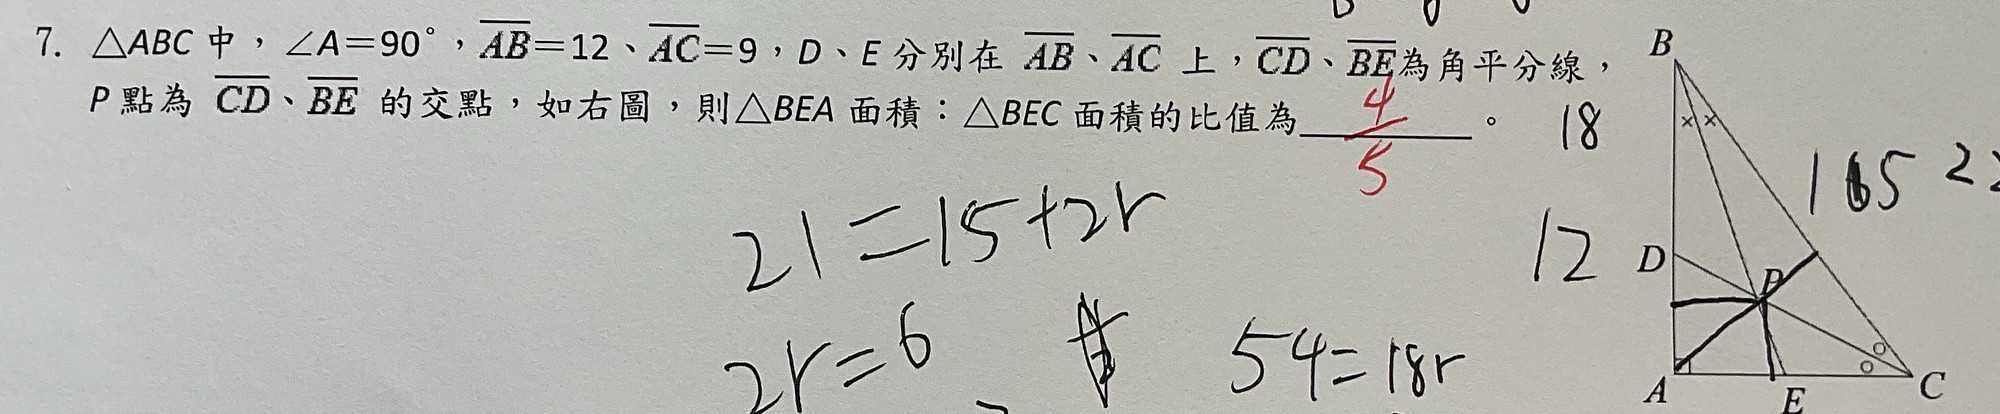 7. △ABC 中，∠A＝90°，AB＝12、AC＝9，D、E 分別在 AB、AC 上，CD、BE為角平分線，
P 點為 CD、BE 的交點，如右圖，則△BEA 面積：△BEC 面積的比值為 4/5 。
B
18
× ×
15 22
21=15+2r
12
D
P
2r=6
54=18r
A
E
C